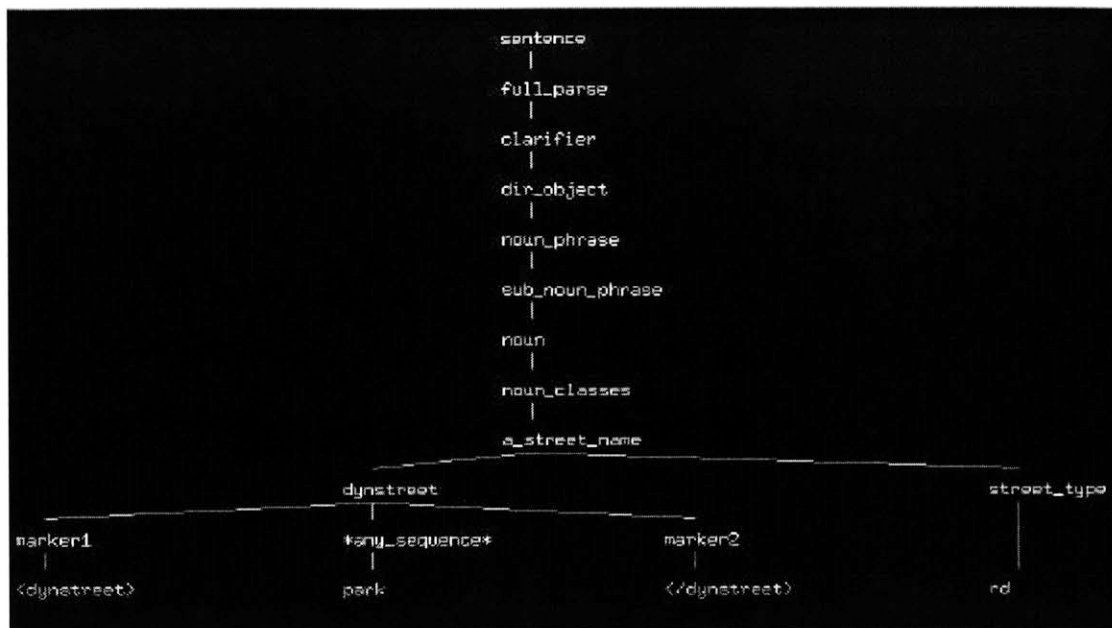 sentence
full_parse
clarifier
dir_object
noun_phrase
sub_noun_phrase
noun
noun_classes
a_street_name
dynstreet street_type
marker1 *any_sequence* marker2
<dynstreet> park </dynstreet> rd